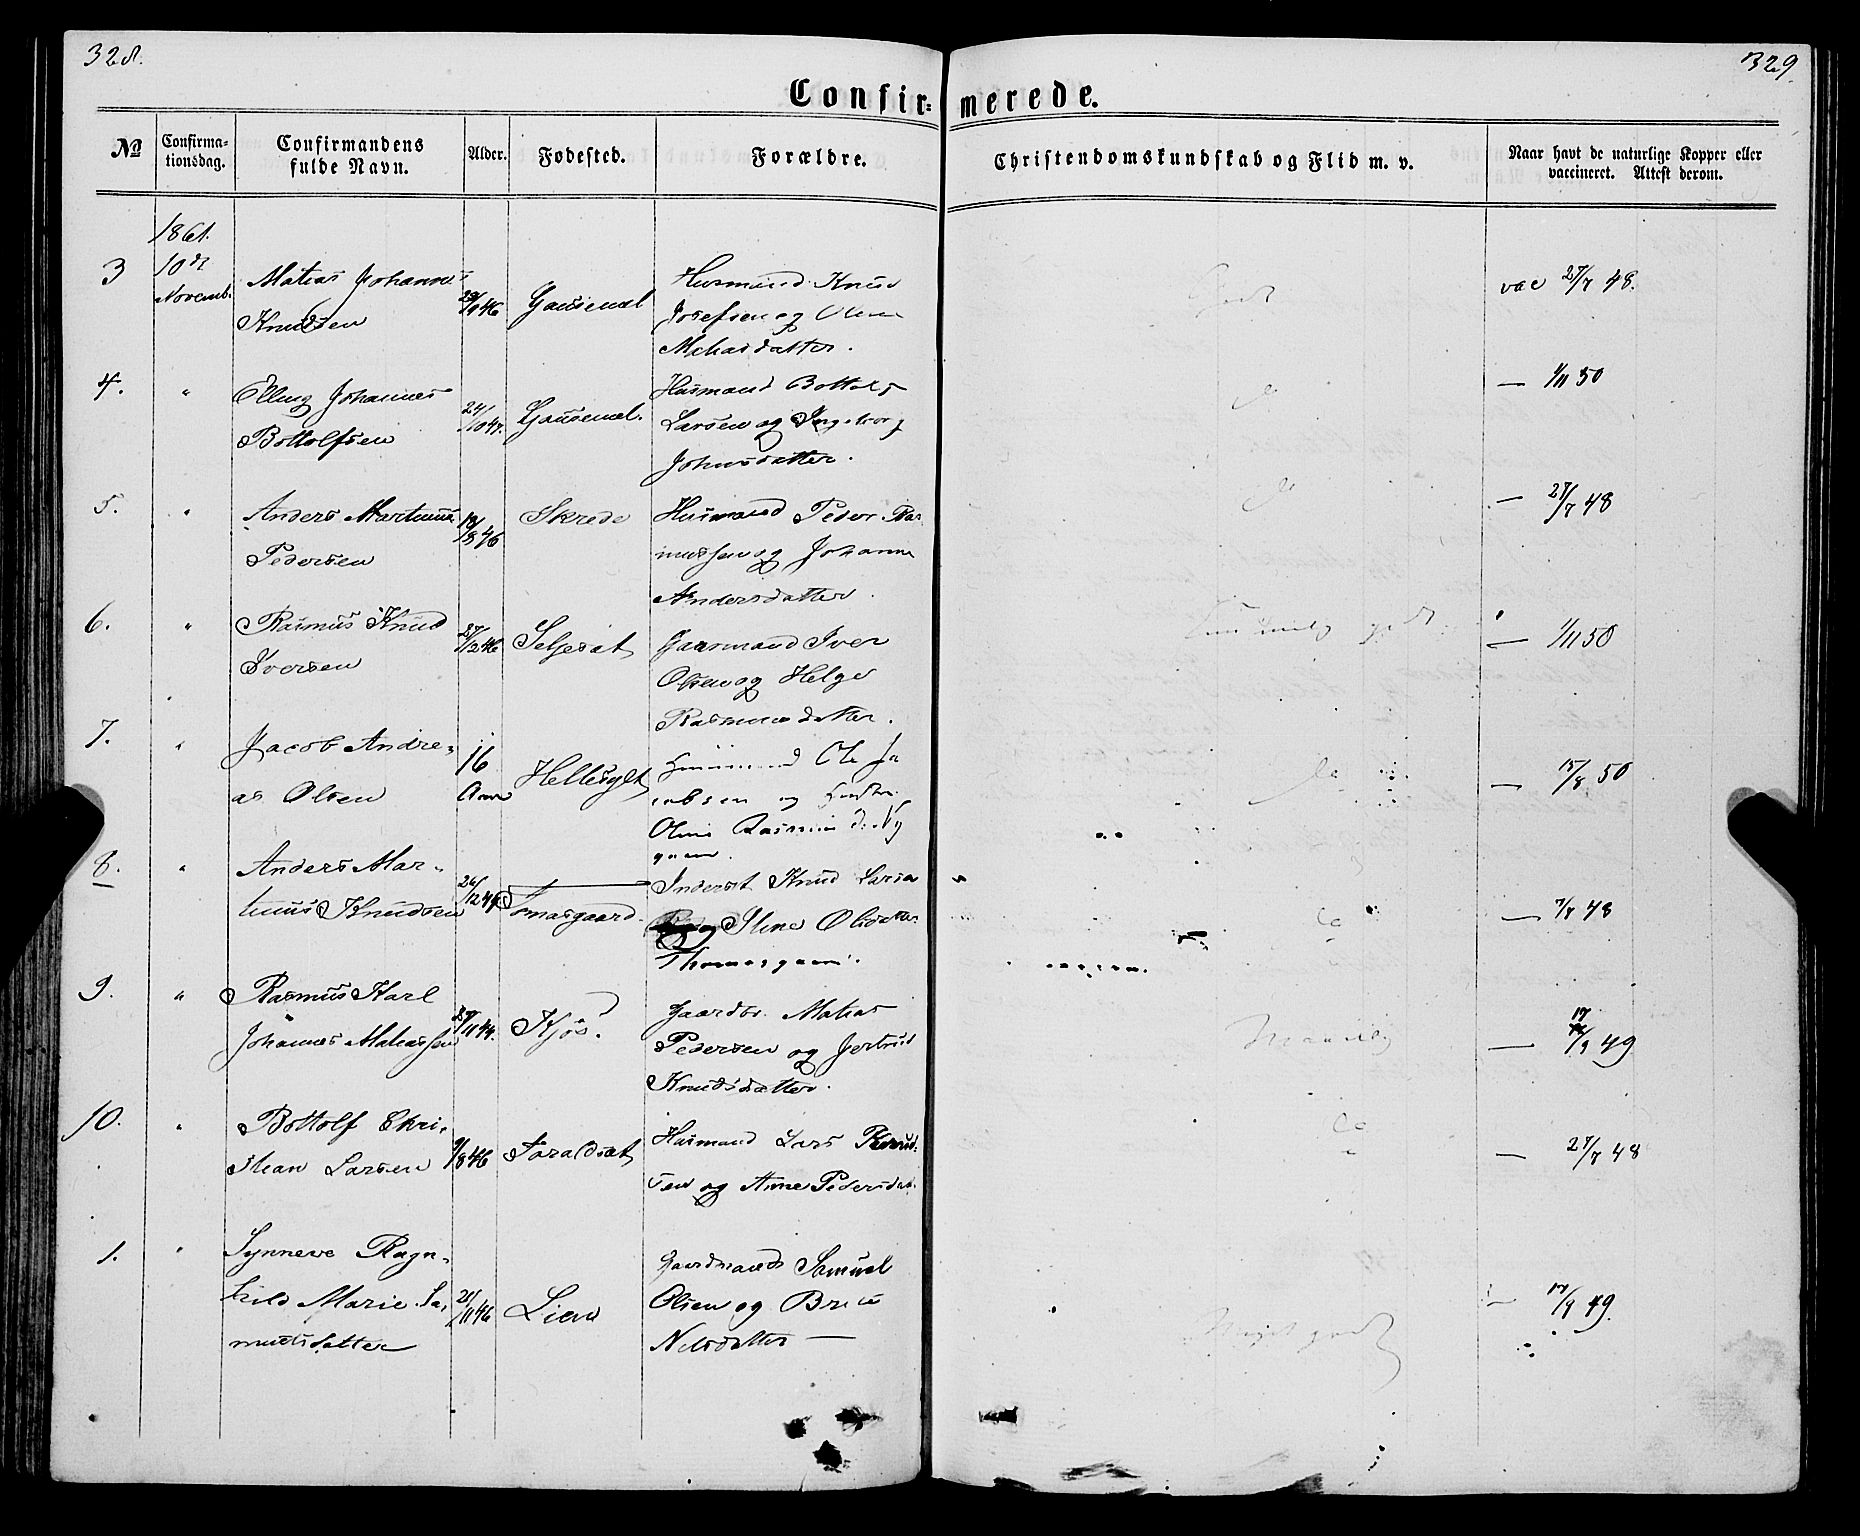 328.
329.
Confir- merede.
No
Confirma-
tionsdag.
Confirmandens
fulde Navn.
Alder.
Fødested.
Forældre.
Christendomskundskab og Flid m. v.
Naar havt de naturlige Kopper eller
vaccineret. Attest derom.
1861.
3
10de
Novemb.
Matias Johannes
Knudsen
Husmand Knud
Josefsen og Oline
Matiasdatter.
Godt
vac 27/7 48.
4.
"
Elling Johannes
Bottolfsen
24/10 47.
Husmand Bottolf
Larsen og Ingeborg
Johnsdatter.
do
— 1/11 50
5.
"
Anders Martinus
Pedersen
18/8 46
Skrede
Husmand Peder Ras
mussen og Johanne
Andersdatter.
do
— 27/7 48
6.
"
Rasmus Knud
Iversen
27/12 46
Seljesæt
Gaarmand Iver
Olsen og Helge
Rasmusdatter.
godt
— 1/11 50
7.
"
Jacob Andre-
as Olsen
16
Aar
Hellesylt
Husmand Ole Ja
cobsen og Hustru
Oline Rasmusd. Ny
gaard.
do
— 15/8 50
8.
"
Anders Mar-
tinus Knudsen
Tomasgaard.
Inderst Knud Larsen
og Stine Olsdatter
Thomasgaard.
do
— 7/7 48
9.
"
Rasmus Karl
Johannes Matiassen
Kjøs.
Gaardbr. Matias
Pedersen og Jertrud
Knudsdatter.
Maadelig
17
— /9 49
10.
"
Bottolf Chri-
stian Larsen
9/8 46
Taraldsæt
Husmand Lars
sen og Anne Pedersdat.
do
— 27/7 48
1.
"
Synneve Ragn-
hild Marie Sa-
muelsdatter
21/11 46
Lien
Gaardmand Samuel
Olsen og Brite
Nilsdatter —
Meget godt
— 17/9 49.